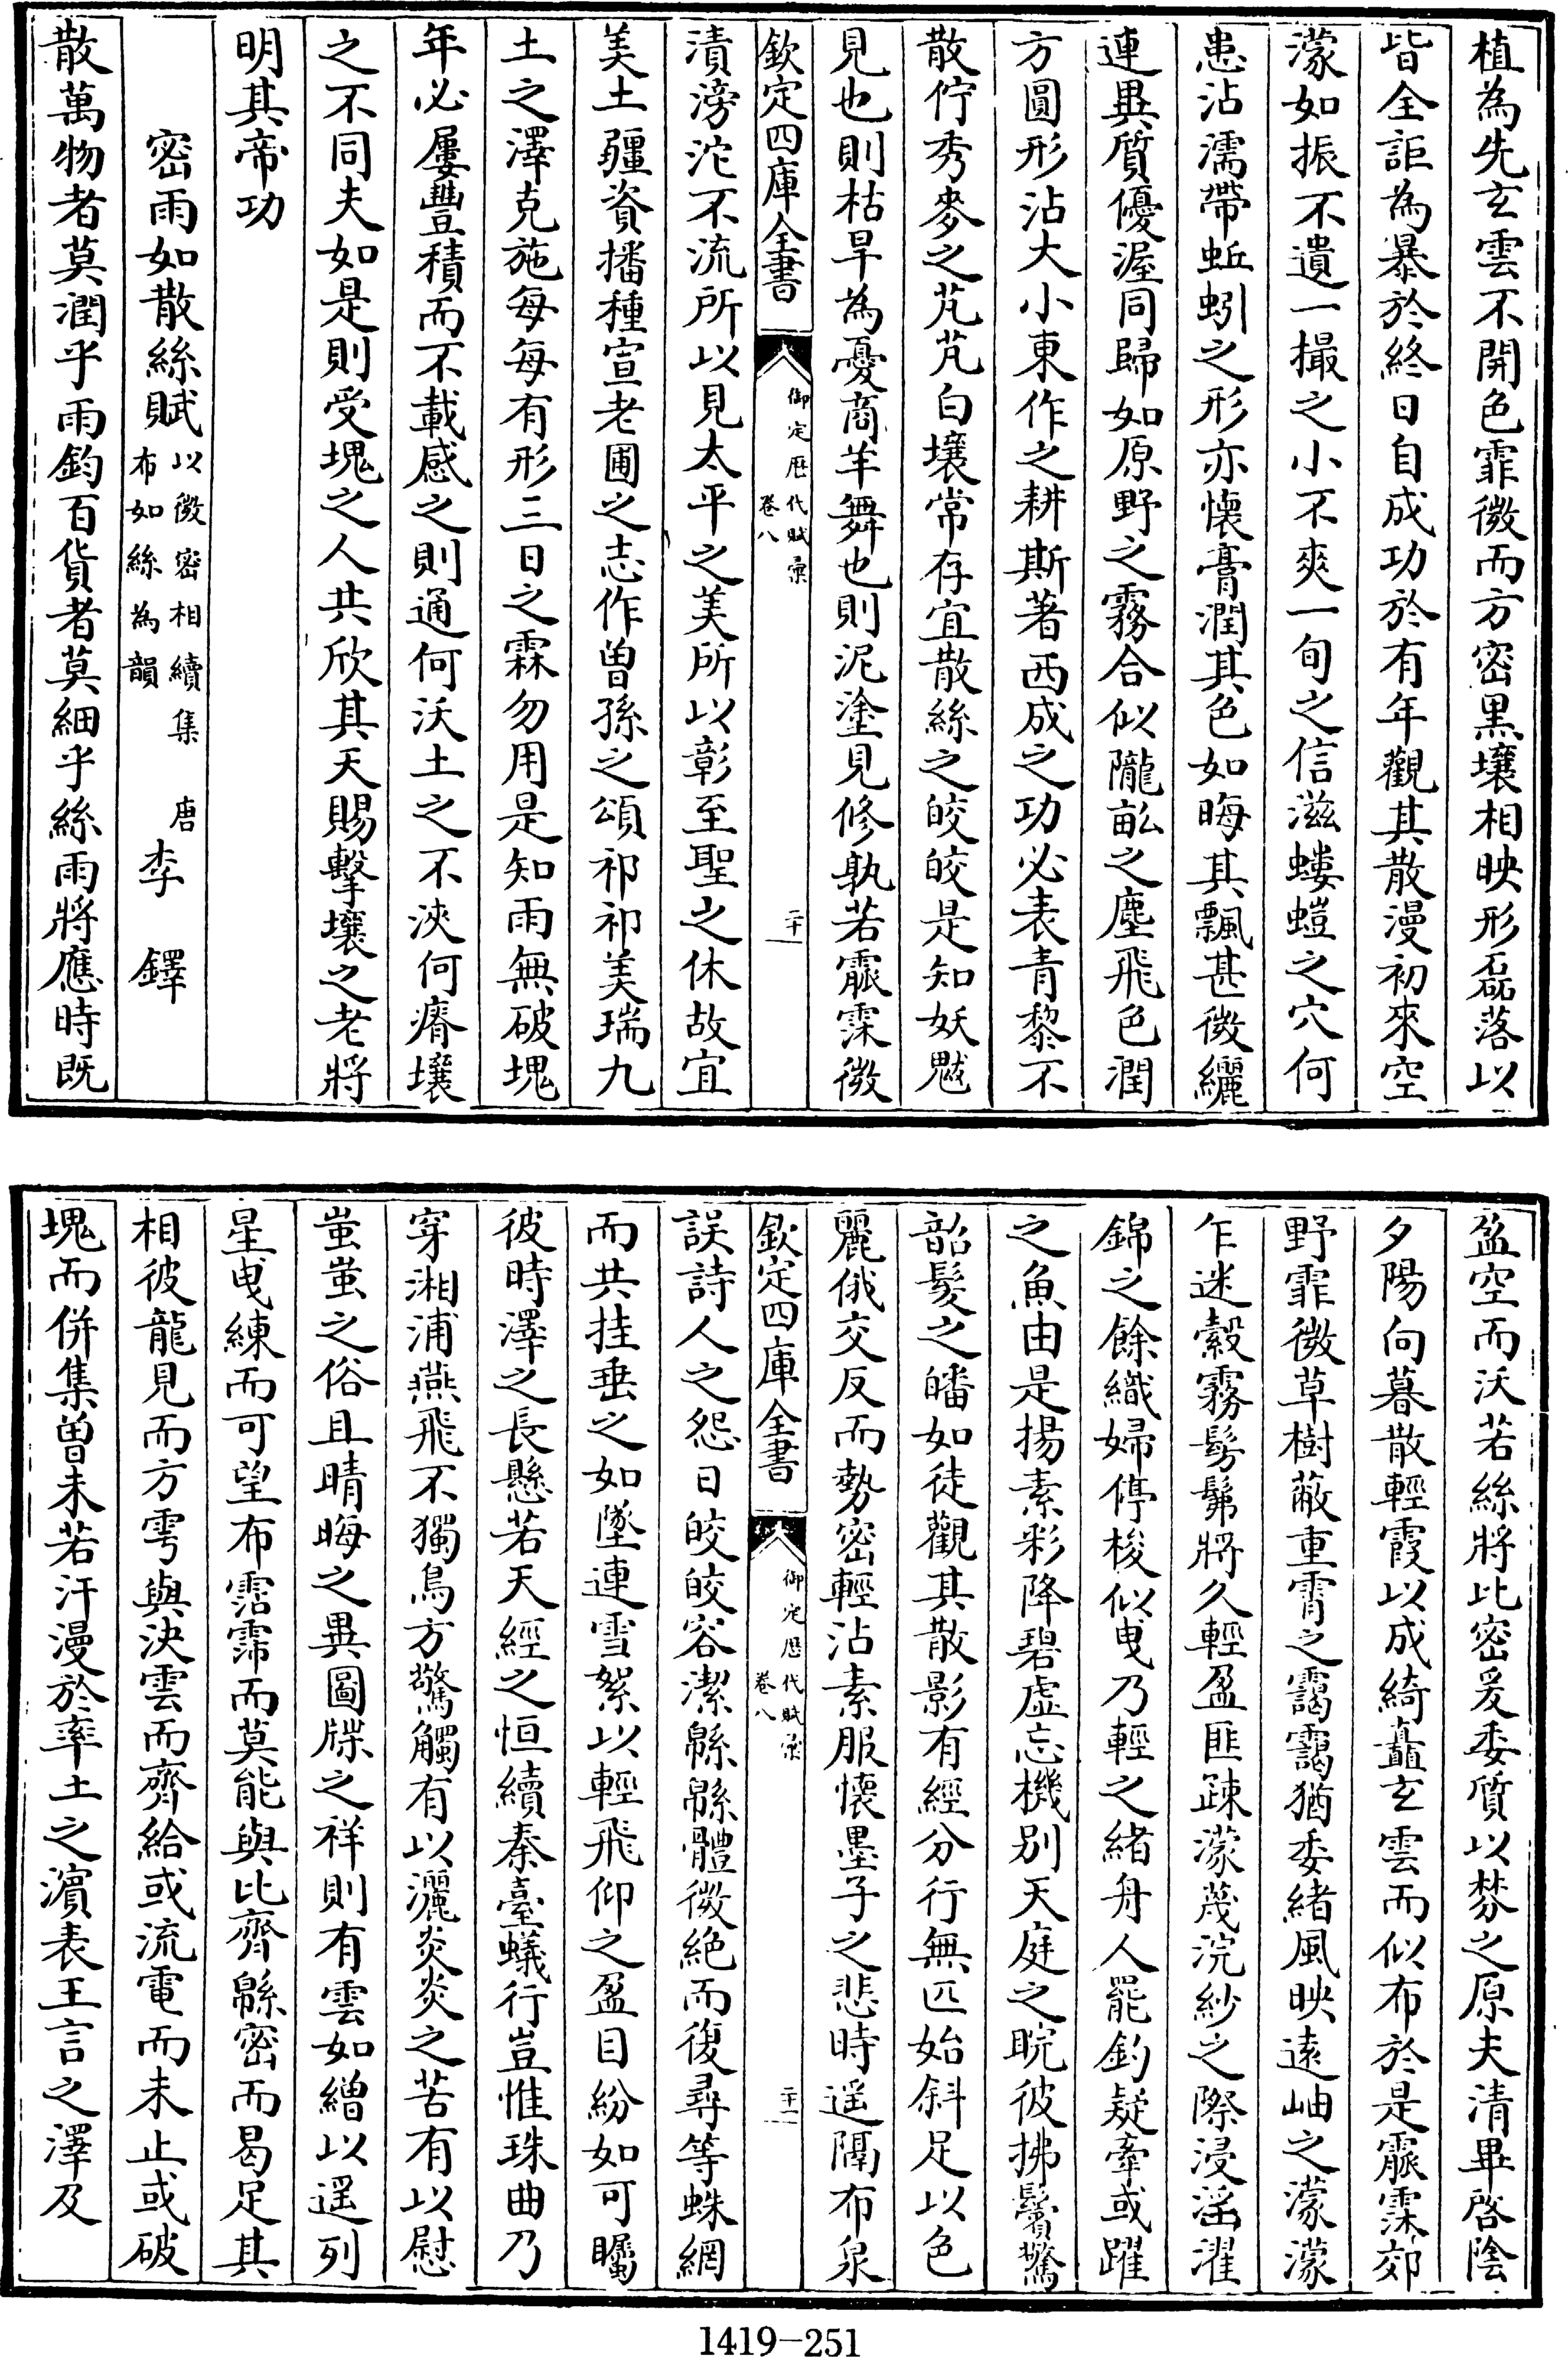 植為先玄雲不開色霏微而方密黒壤相映形磊落以
皆全詎為暴於終日自成功於有年觀其散漫初來空
濛如振不遺一撮之小不爽一旬之信滋螻螘之穴何
患沾濡帶蚯蚓之形亦懷膏潤其色如晦其飄甚微纚
連異質優渥同歸如原野之霧合似隴畝之塵飛色潤
方圓形沾大小東作之耕斯著西成之功必表青黎不
散佇秀麥之芃芃白壤常存宜散絲之皎皎是知妖魃
見也則枯旱為憂商羊舞也則泥塗見修孰若霢霂微
欽定四庫全書
御定歷代賦彙
卷八
二十
漬滂沱不流所以見太平之美所以彰至聖之休故宜
美土疆資播種宣老圃之志作曽孫之頌祁祁美瑞九
土之澤克施每每有形三日之霖勿用是知雨無破塊
年必屢豐積而不載感之則通何沃土之不浹何瘠壤
之不同夫如是則受塊之人共欣其天賜擊壤之老將
明其帝功
密雨如散絲賦 以微密相續集布如絲為韻 唐 李鐸
散萬物者莫潤乎雨鈞百貨者莫細乎絲雨將應時既
盈空而沃若絲將比密爰委質以棼之原夫清畢啓陰
夕陽向暮散輕霞以成綺矗玄雲而似布於是霢霂郊
野霏微草樹蔽重霄之靄靄猶委緒風映遠岫之濛濛
乍迷縠霧髣髴將久輕盈匪疎濛蔑浣紗之際浸滛濯
錦之餘織婦停梭似曵乃輕之緒舟人罷釣疑牽或躍
之魚由是揚素彩降碧虚忘機别天庭之睆彼拂鬢驚
韶髮之皤如徒觀其散影有經分行無匹始斜足以色
麗俄交反而勢密輕沾素服懷墨子之悲時遥隔布泉
欽定四庫全書
御定歷代賦彙
卷八
二十一
誤詩人之怨日皎皎容潔緜緜體微絶而復尋等蛛網
而共挂垂之如墜連雪絮以輕飛仰之盈目紛如可矚
彼時澤之長懸若天經之恒續秦臺蟻行豈惟珠曲乃
穿湘浦燕飛不獨鳥方驚觸有以灑炎炎之苦有以慰
蚩蚩之俗且晴晦之異圖牒之祥則有雲如繒以遥列
星曵練而可望布霑霈而莫能與比齊緜密而曷足其
相彼龍見而方雩與決雲而齊給或流電而未止或破
塊而併集曽未若汗漫於率土之濵表王言之澤及
1419-251